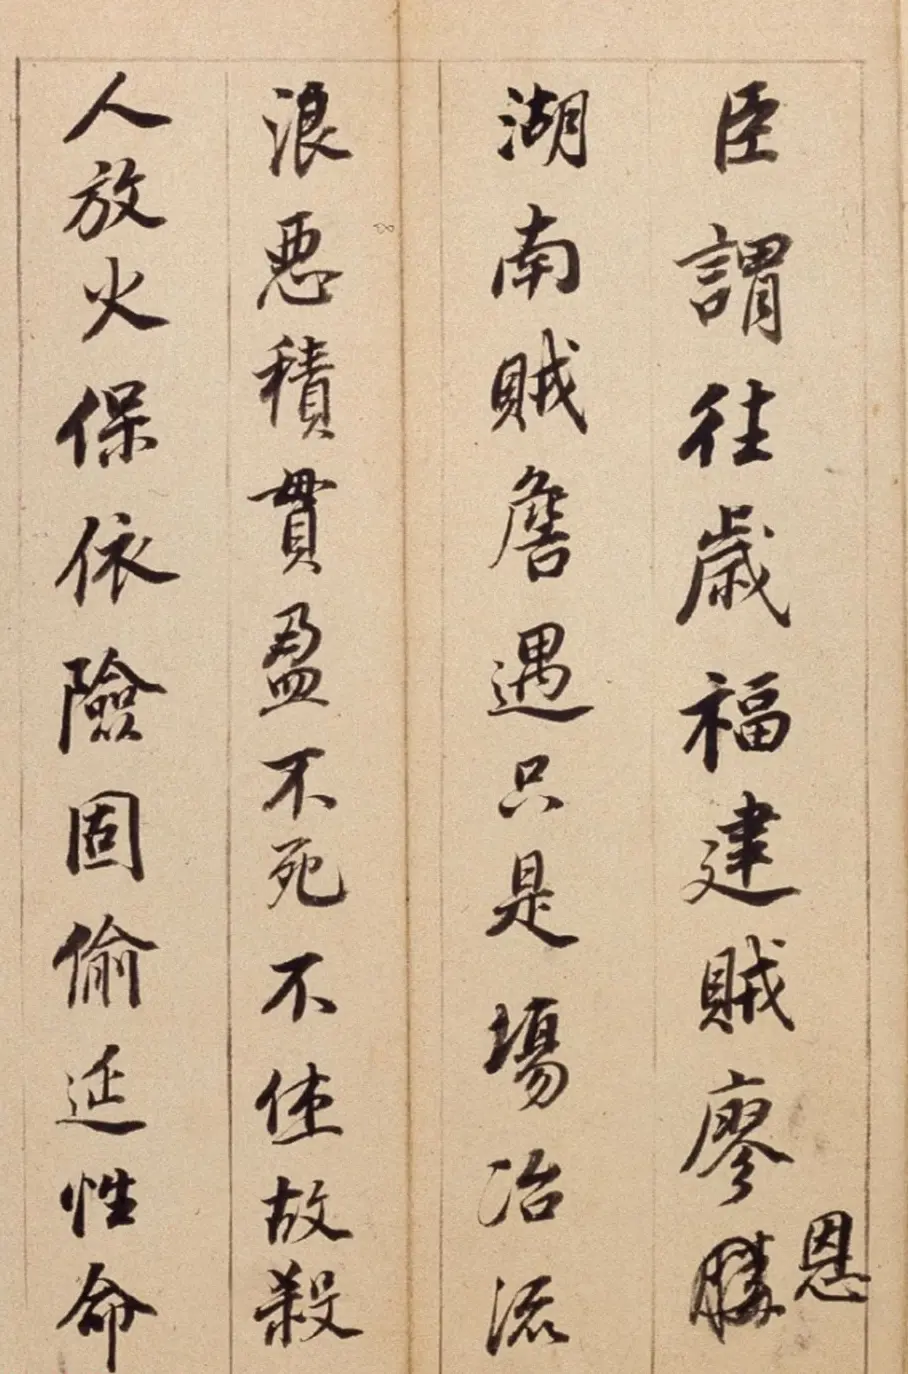 臣謂往歲福建賊廖恩
湖南賊詹遇只是場冶流
浪悪積貫盈不死不住故殺
人放火保依險固偷延性命